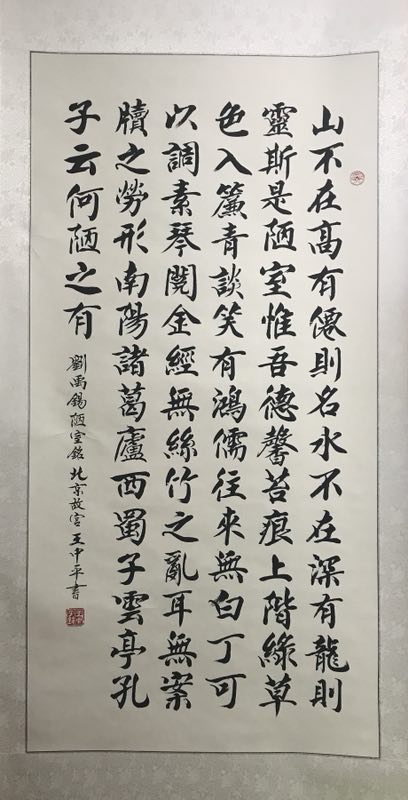 山不在高有僊則名水不在深有龍則
靈斯是陋室惟吾德馨苔痕上階綠草
色入簾青談笑有鴻儒往來無白丁可
以調素琴閱金經無絲竹之亂耳無案
牘之勞形南陽諸葛廬西蜀子雲亭孔
子云何陋之有
劉禹錫陋室銘北京故宮王中平書